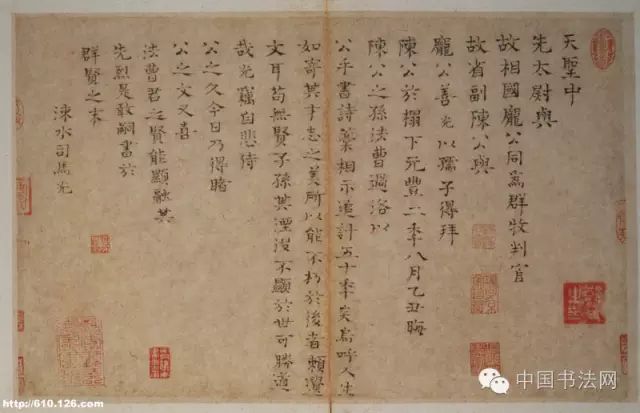 天聖中
先太尉與
故相國龐公同為群牧判官
故省副陳公與
龐公善光以孺子得拜
陳公於榻下元豐二年八月乙丑晦
陳公之孫法曹過洛以
公手書詩藁相示追計五十年矣嗚呼人生
如寄其才志之美所以能不朽於後者賴遺
文耳苟無賢子孫其湮沒不顯於世可勝道
哉光竊自悲侍
公之久今日乃得睹
公之文又喜
法曹君之賢能顯融其
先烈是敢嗣書於
群賢之末
涑水司馬光
中国书法网
http://610.126.com/